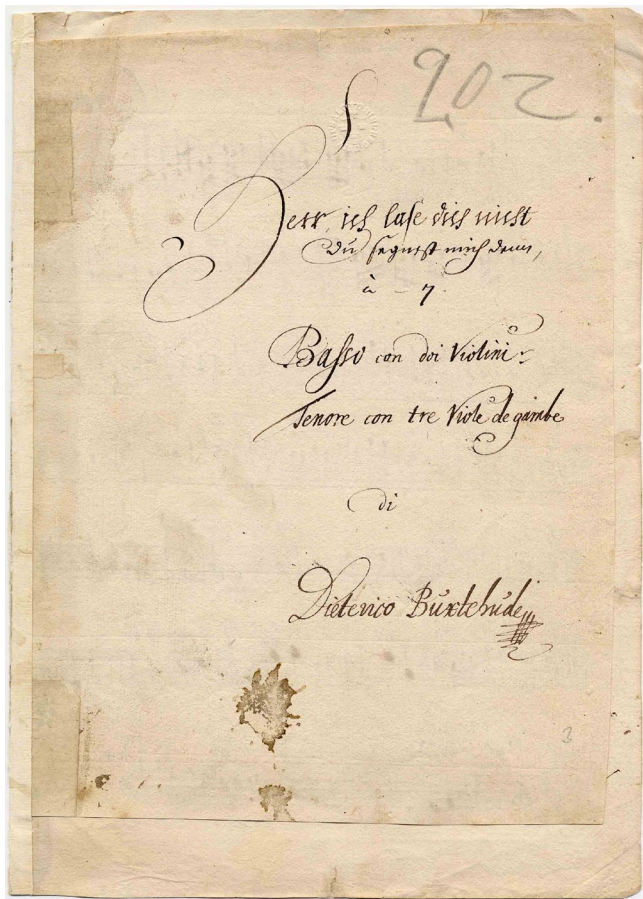 202.
Herr, ich lase dich nicht
Du segnest mich denn,
à 7.
Basso con doi Violini
Tenore con tre Viole de gambe
di
Dieterico Buxtehude
3